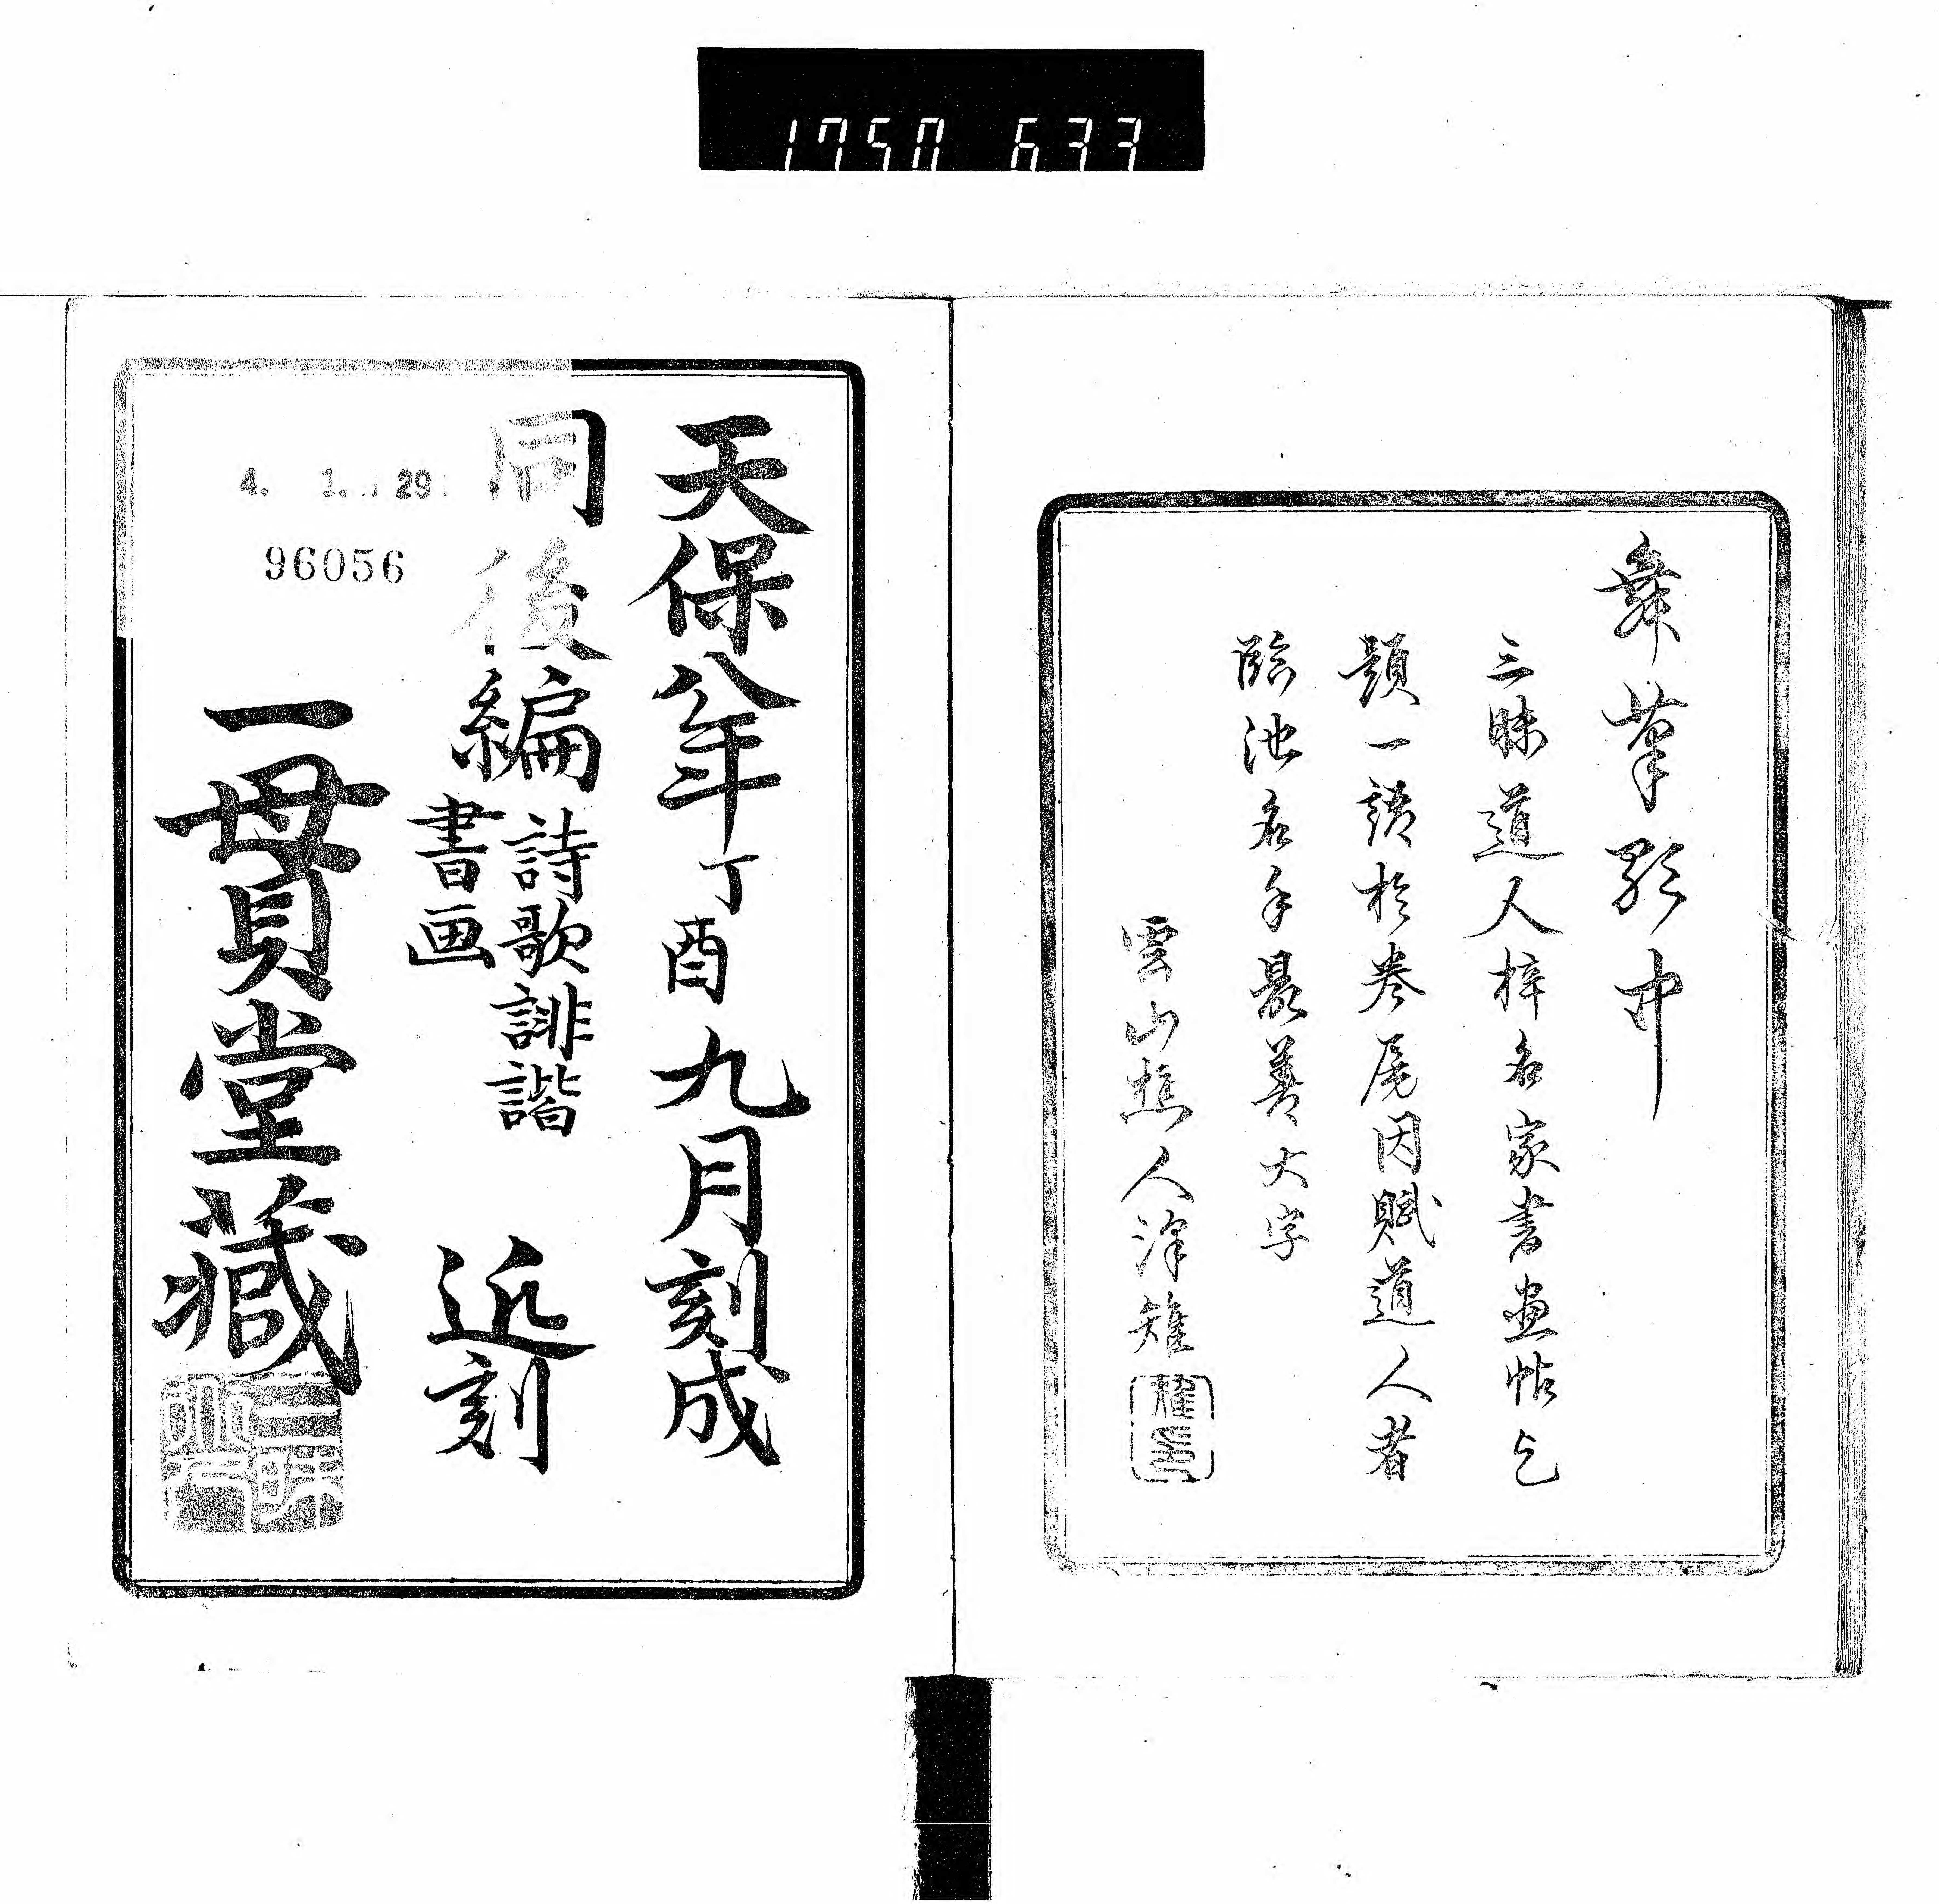 1750 633
舞筆影中
三昧道人梓名家書画帖乞
題一語於巻尾因賦道人者
臨池名手最善大字
雲山樵人澤雉
天保八年丁酉九月刻成
同後編
詩歌誹諧
書画
近刻
一貫堂藏
4. 1. 29
96056